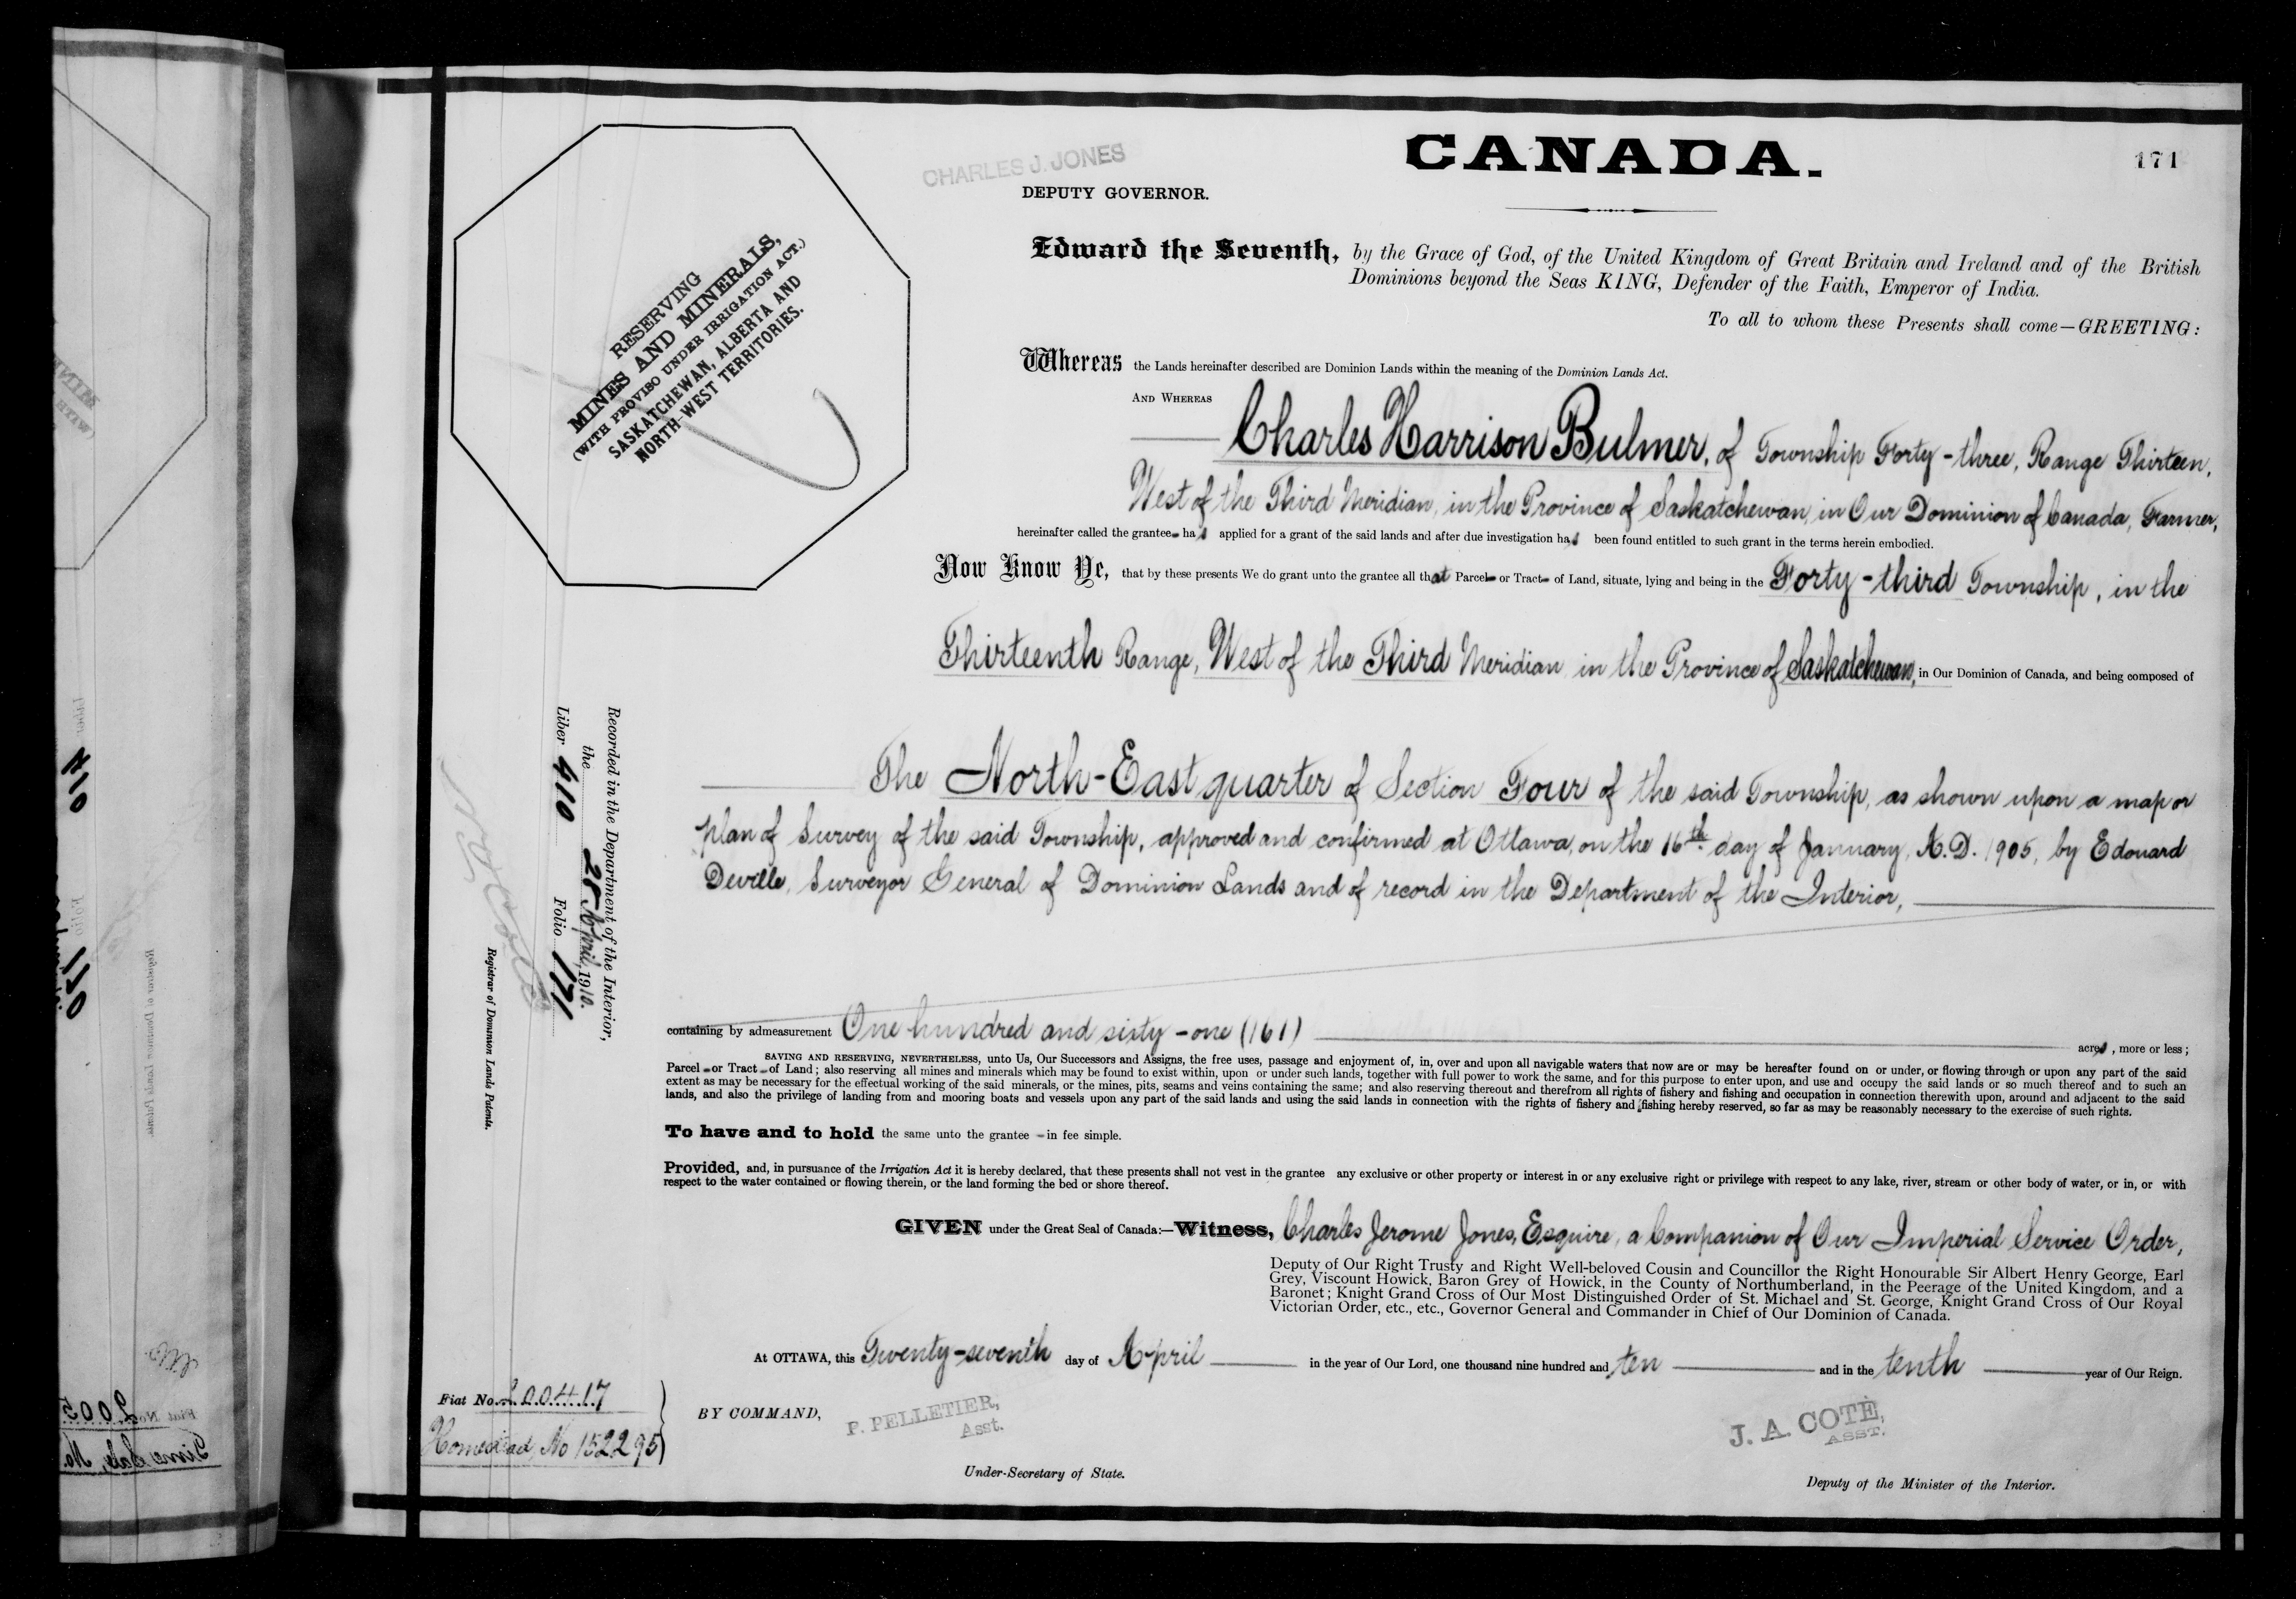 CHARLES J. JONES
DEPUTY GOVERNOR.
CANADA.
171
Edward the Seventh, by the Grace of God, of the United Kingdom of Great Britain and Ireland and of the British
Dominions beyond the Seas KING, Defender of the Faith, Emperor of India.
To all to whom these Presents shall come—GREETING:
RESERVING
MINES AND MINERALS,
(WITH PROVISO UNDER IRRIGATION ACT.)
SASKATCHEWAN, ALBERTA AND
NORTH-WEST TERRITORIES.
Whereas the Lands hereinafter described are Dominion Lands within the meaning of the Dominion Lands Act.
AND WHEREAS
Charles Harrison Bulmer, of Township Forty-three, Range Thirteen,
West of the Third Meridian, in the Province of Saskatchewan, in Our Dominion of Canada, Farmer,
hereinafter called the grantee has applied for a grant of the said lands and after due investigation has been found entitled to such grant in the terms herein embodied.
Now Know Ye, that by these presents We do grant unto the grantee all that Parcel or Tract of Land, situate, lying and being in the Forty-third Township, in the
Thirteenth Range, West of the Third Meridian in the Province of Saskatchewan, in Our Dominion of Canada, and being composed of
The North-East quarter of Section Four of the said Township, as shown upon a map or
plan of Survey of the said Township, approved and confirmed at Ottawa, on the 16th. day of January, A.D. 1905, by Edouard
Deville, Surveyor General of Dominion Lands and of record in the Department of the Interior,
containing by admeasurement One hundred and sixty-one (161) acres, more or less;
SAVING AND RESERVING, NEVERTHELESS, unto Us, Our Successors and Assigns, the free uses, passage and enjoyment of, in, over and upon all navigable waters that now are or may be hereafter found on or under, or flowing through or upon any part of the said
Parcel or Tract of Land; also reserving all mines and minerals which may be found to exist within, upon or under such lands, together with full power to work the same, and for this purpose to enter upon, and use and occupy the said lands or so much thereof and to such an
extent as may be necessary for the effectual working of the said minerals, or the mines, pits, seams and veins containing the same; and also reserving thereout and therefrom all rights of fishery and fishing and occupation in connection therewith upon, around and adjacent to the said
lands, and also the privilege of landing from and mooring boats and vessels upon any part of the said lands and using the said lands in connection with the rights of fishery and fishing hereby reserved, so far as may be reasonably necessary to the exercise of such rights.
To have and to hold the same unto the grantee in fee simple.
Provided, and, in pursuance of the Irrigation Act it is hereby declared, that these presents shall not vest in the grantee any exclusive or other property or interest in or any exclusive right or privilege with respect to any lake, river, stream or other body of water, or in, or with
respect to the water contained or flowing therein, or the land forming the bed or shore thereof.
GIVEN under the Great Seal of Canada:—Witness, Charles Jerome Jones, Esquire, a Companion of Our Imperial Service Order,
Deputy of Our Right Trusty and Right Well-beloved Cousin and Councillor the Right Honourable Sir Albert Henry George, Earl
Grey, Viscount Howick, Baron Grey of Howick, in the County of Northumberland, in the Peerage of the United Kingdom, and a
Baronet; Knight Grand Cross of Our Most Distinguished Order of St. Michael and St. George, Knight Grand Cross of Our Royal
Victorian Order, etc., etc., Governor General and Commander in Chief of Our Dominion of Canada.
At OTTAWA, this Twenty-seventh day of April in the year of Our Lord, one thousand nine hundred and ten and in the tenth year of Our Reign.
BY COMMAND,
P. PELLETIER,
Asst.
Under-Secretary of State.
J. A. COTÉ,
ASST.
Deputy of the Minister of the Interior.
Recorded in the Department of the Interior,
the 28 April, 1910.
Liber 410 Folio 171
Registrar of Dominion Lands Patents.
Fiat No. 200417
Homestead, No 152295